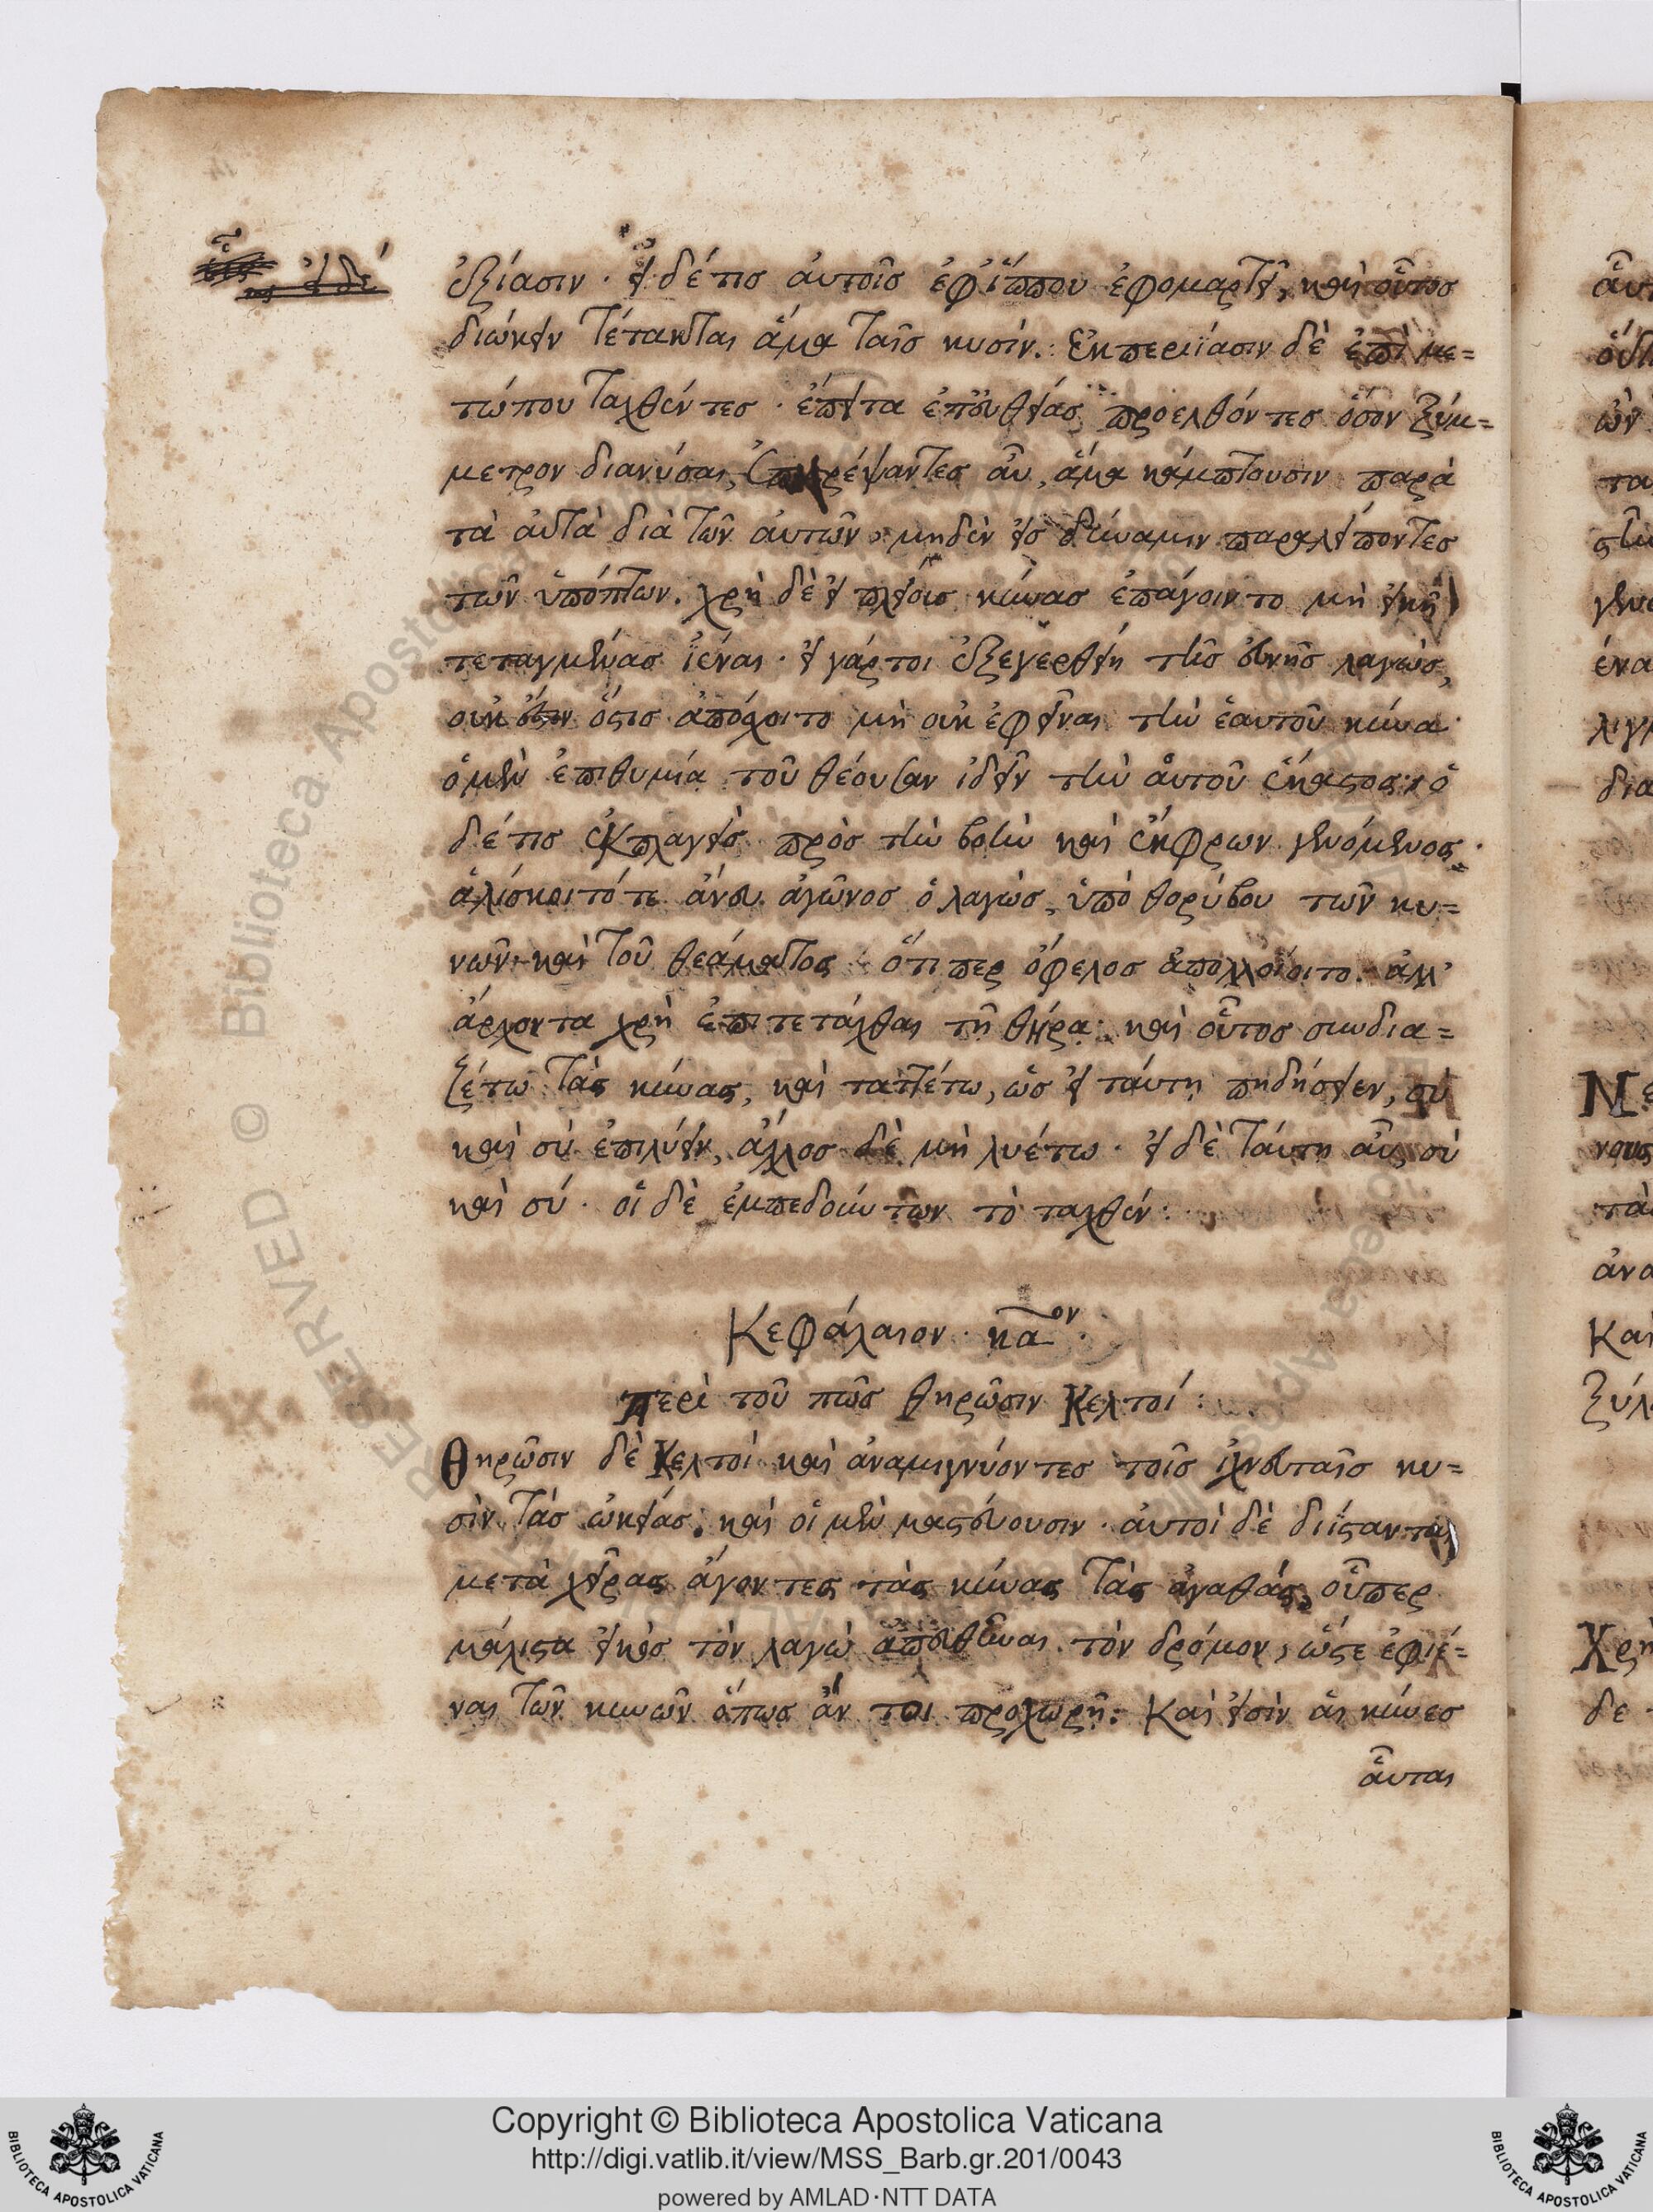 ἐξίασιν· εἰ δέ τις αὐτοῖς ἐφ' ἵππου ἐφομαρτεῖ, καὶ οὗτος
διώκειν τέτακται ἅμα ταῖς κυσίν. ἐκπεριίασιν δὲ ἐπὶ με=
τώπου ταχθέντες· ἔπειτα ἐπ' εὐθείας προελθόντες ὅσον ξύμ=
μετρον διανύσαι, ἐπιστρέψαντες αὖ, ἅμα κάμπτουσιν παρὰ
τὰ αὐτὰ διὰ τῶν αὐτῶν· μηδὲν εἰς δύναμιν παραλείποντες
τῶν ὑπόπτων. χρὴ δὲ εἰ πλείους κύνας ἐπάγοιντο μὴ εἰκῆ
τεταγμένας ἰέναι· εἰ γάρ τοι ἐξεγερθείη τῆς εὐνῆς λαγώς,
οὐκ ἔστιν ὅστις ἀπόσχοιτο μὴ οὐκ ἐφεῖναι τὴν ἑαυτοῦ κύνα
ὁ μὲν ἐπιθυμία τοῦ θέουσαν ἰδεῖν τὴν αὑτοῦ ἕκαστος· ὁ
δέ τις ἐκπλαγεὶς πρὸς τὴν βοὴν καὶ ἔκφρων γενόμενος·
ἁλίσκοιτό τε ἄνευ ἀγῶνος ὁ λαγώς, ὑπὸ θορύβου τῶν κυ=
νῶν· καὶ τοῦ θεάματος ὅτι περ ὄφελος ἀπολλύοιτο. ἀλλ'
ἄρχοντα χρὴ ἐπιτετάχθαι τῇ θήρα· καὶ οὗτος συνδια=
ζέτω τὰς κύνας, καὶ ταττέτω, ὡς εἰ ταύτη πηδήσειεν, σὺ
καὶ σὺ ἐπιλύειν, ἄλλος δὲ μὴ λυέτω· εἰ δὲ ταύτη αὖ, σὺ
καὶ σύ· οἱ δὲ ἐμπεδούντων τὸ ταχθέν:
Κεφάλαιον κα^ον·
περὶ τοῦ πῶς θηρῶσιν Κελτοί:
Θηρῶσιν δὲ Κελτοί καὶ ἀναμιγνύοντες τοῖς ἰχνευταῖς κυ=
σὶν τὰς ὠκείας· καὶ οἱ μὲν μαστεύουσιν· αὐτοὶ δὲ διίστανται
μετὰ χεῖρας ἄγοντες τὰς κύνας τὰς ἀγαθάς, οὗπερ
μάλιστα εἰκὸς τὸν λαγὼ ἀπευθῦναι τὸν δρόμον, ὥστε ἐφιέ=
ναι τῶν κυνῶν ὅπως ἄν τοι προχωρῇ: Καὶ εἰσὶν αἱ κύνες
αὗται
Copyright © Biblioteca Apostolica Vaticana
http://digi.vatlib.it/view/MSS_Barb.gr.201/0043
powered by AMLAD·NTT DATA